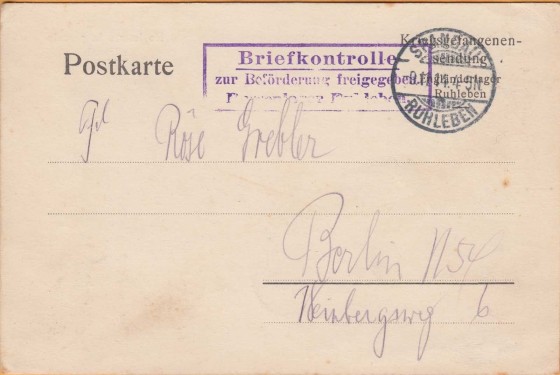 Postkarte
Kriegsgefangenen-
sendung.
Engländerlager
Ruhleben
Briefkontrolle
zur Beförderung freigegeben.
Ruhleben
SPANDAU
RUHLEBEN
Rose Grebler
Berlin N 54
Weinbergsweg 6